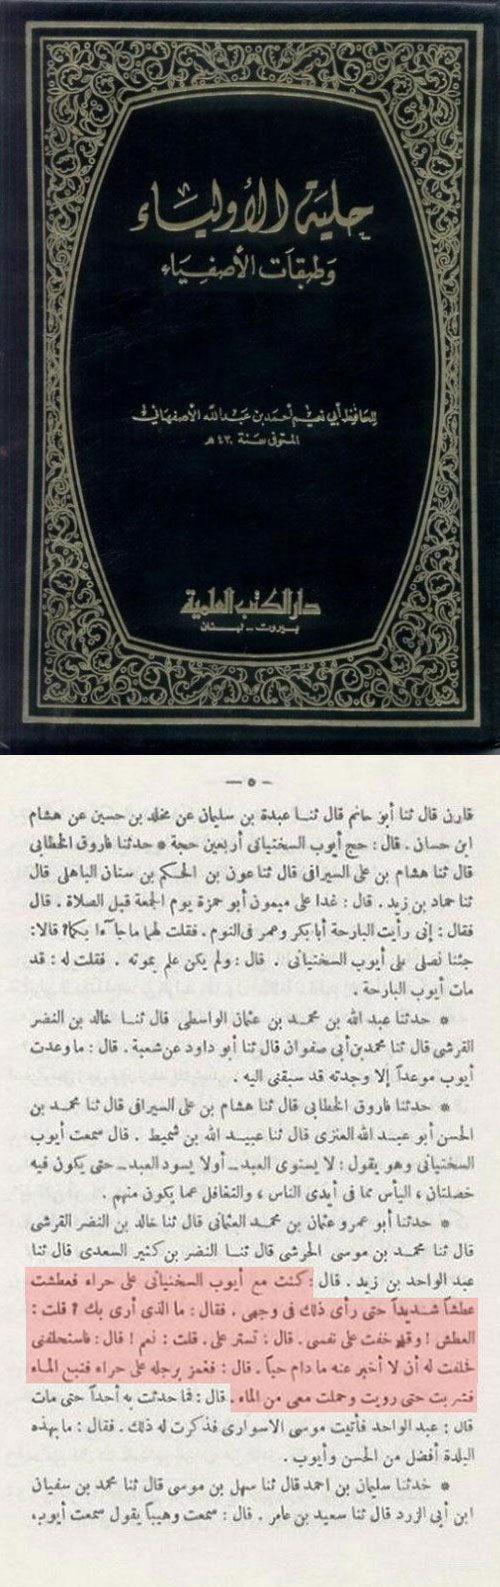 حلية الأولياء
وطبقات الأصفياء
للحافظ أبي نعيم أحمد بن عبد الله الأصفهاني
المتوفى سنة ٤٣٠ هـ
دار الكتب العلمية
بيروت - لبنان
— ٥ —
قارن قال ثنا أبو حاتم قال ثنا عبدة بن سليمان عن مخلد بن حسين عن هشام
ابن حسان . قال : حج أيوب السختيانى أربعين حجة * حدثنا فاروق الخطابى
قال ثنا هشام بن على السيرافى قال ثنا عون بن الحكم بن سنان الباهلى قال
ثنا حماد بن زيد . قال : غدا على ميمون أبو حمزة يوم الجمعة قبل الصلاة . قال
فقال : إنى رأيت البارحة أبا بكر وعمر فى النوم . فقلت لهما ما جاء بكما؟ قالا :
جئنا نصلى على أيوب السختيانى . قال : ولم يكن علم بموته . فقلت له : قد
مات أيوب البارحة .
* حدثنا عبد الله بن محمد بن عثمان الواسطى قال ثنا خالد بن النضر
القرشى قال ثنا محمد بن أبى صفوان قال ثنا أبو داود عن شعبة . قال : ما وعدت
أيوب موعداً إلا وجدته قد سبقنى اليه .
* حدثنا فاروق الخطابى قال ثنا هشام بن على السيرافى قال ثنا محمد بن
الحسن أبو عبد الله العنزى قال ثنا عبيد الله بن شميط . قال سمعت أيوب
السختيانى وهو يقول : لا يستوى العبد ــ أولا يسود العبد ــ حتى يكون فيه
خصلتان ، اليأس مما فى أيدى الناس ، والتغافل عما يكون منهم .
* حدثنا أبو عمرو عثمان بن محمد العثمانى قال ثنا خالد بن النضر القرشى
قال ثنا محمد بن موسى الحرشى قال ثنا النضر بن كثير السعدى قال ثنا
عبد الواحد بن زيد . قال : كنت مع أيوب السختيانى على حراء فعطشت
عطشاً شديداً حتى رأى ذلك فى وجهى . فقال : ما الذى أرى بك ؟ قلت :
العطش ! وقد خفت على نفسى . قال : تستر على . قلت : نعم ! قال : فاستحلفنى
فحلفت له أن لا أخبر عنه ما دام حياً . قال : فغمز برجله على حراء فنبع الماء
فشربت حتى رويت وحملت معى من الماء . قال : فما حدثت به أحداً حتى مات
قال : عبد الواحد فأتيت موسى الاسوارى فذكرت له ذلك . فقال : ما بهذه
البلدة أفضل من الحسن وأيوب .
* حدثنا سليمان بن احمد قال ثنا سهل بن موسى قال ثنا محمد بن سفيان
ابن أبى الزرد قال ثنا سعيد بن عامر . قال : سمعت وهيباً يقول سمعت أيوب،